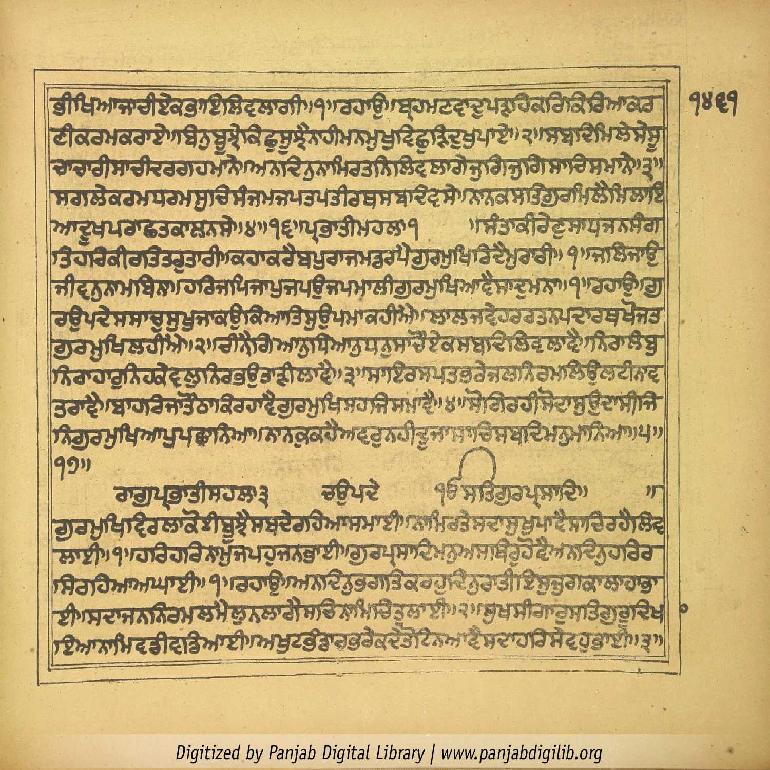 ੧੪੬੧
ਭੀਖਿਆਜਾਚੀਏਕਭਾਇਲਿਵਲਾਗੀ॥੧॥ਰਹਾਉ॥ਬ੍ਰਹਮਣਵਾਦੁਪੜਹਿਕਰਿਕਿਰਿਆਕਰ
ਣੀਕਰਮਕਰਾਏ॥ਬਿਨੁਬੂਝੇਕਿਛੁਸੂਝੈਨਾਹੀਮਨਮੁਖੁਵਿਛੁੜਿਦੁਖੁਪਾਏ॥੨॥ਸਬਦਿਮਿਲੇਸੇਸੂ
ਚਾਚਾਰੀਸਾਚੀਦਰਗਹਮਾਨੇ॥ਅਨਦਿਨੁਨਾਮਿਰਤਨਿਲਿਵਲਾਗੇਜੁਗਿਜੁਗਿਸਾਚਿਸਮਾਨੇ॥੩॥
ਸਗਲੇਕਰਮਧਰਮਸੁਚਿਸੰਜਮਜਪਤਪਤੀਰਥਸਬਦਿਵਸੇ॥ਨਾਨਕਸਤਿਗੁਰਮਿਲੈਮਿਲਾਇ
ਆਦੂਖਪਰਾਛਤਕਾਲਨਸੇ॥੪॥੧੬॥ਪ੍ਰਭਾਤੀਮਹਲਾ੧ ॥ਸੰਤਾਕੀਰੇਣੁਸਾਧਜਨਸੰਗ
ਤਿਹਰਿਕੀਰਤਿਤਰੁਤਾਰੀ॥ਕਹਾਕਰੈਬਪੁਰਾਜਮੁਡਰਪੈਗੁਰਮੁਖਿਰਿਦੈਮੁਰਾਰੀ॥੧॥ਜਲਿਜਾਉ
ਜੀਵਨੁਨਾਮਬਿਨਾ॥ਹਰਿਜਪਿਜਾਪੁਜਪਉਜਪਮਾਲੀਗੁਰਮੁਖਿਆਵੈਸਾਦੁਮਨਾ॥੧॥ਰਹਾਉ॥ਗੁ
ਰਉਪਦੇਸਸਾਚੁਸੁਖੁਜਾਕਉਕਿਆਤਿਸੁਉਪਮਾਕਹੀਐ॥ਲਾਲਜਵੇਹਰਰਤਨਪਦਾਰਥਖੋਜਤ
ਗੁਰਮੁਖਿਲਹੀਐ॥੨॥ਚੀਨੈਗਿਆਨੁਧਿਆਨੁਧਨੁਸਾਚੌਏਕਸਬਦਿਲਿਵਲਾਵੈ॥ਨਿਰਾਲੰਬੁ
ਨਿਰਾਹਾਰੁਨਿਹਕੇਵਲੁਨਿਰਭਉਤਾੜੀਲਾਵੈ॥੩॥ਸਾਇਰਸਪਤਭਰੇਜਲਨਿਰਮਲਿਉਲਟੀਨਾਵ
ਤਰਾਵੈ॥ਬਾਹਰਿਜਾਤੌਠਾਕਿਰਹਾਵੈਗੁਰਮੁਖਿਸਹਜਿਸਮਾਵੈ॥੪॥ਸੋਗਿਰਹੀਸੋਦਾਸੁਉਦਾਸੀਜਿ
ਨਿਗੁਰਮੁਖਿਆਪੁਪਛਾਨਿਆ॥ਨਾਨਕੁਕਹੈਅਵਰੁਨਹੀਦੂਜਾਸਾਚਿਸਬਦਿਮਨੁਮਾਨਿਆ॥੫॥
੧੭॥
ਰਾਗੁਪ੍ਰਭਾਤੀਮਹਲਾ੩ ਚਉਪਦੇ ੴਸਤਿਗੁਰਪ੍ਰਸਾਦਿ॥ ॥
ਗੁਰਮੁਖਿਵਿਰਲਾਕੋਈਬੂਝੈਸਬਦੇਰਹਿਆਸਮਾਈ॥ਨਾਮਿਰਤੇਸਦਾਸੁਖੁਪਾਵੈਸਾਚਿਰਹੈਲਿਵ
ਲਾਈ॥੧॥ਹਰਿਹਰਿਨਾਮੁਜਪਹੁਜਨਭਾਈ॥ਗੁਰਪ੍ਰਸਾਦਿਮਨੁਅਸਥਿਰੁਹੋਵੈਅਨਦਿਨੁਹਰਿਰ
ਸਿਰਹਿਆਅਘਾਈ॥੧॥ਰਹਾਉ॥ਅਨਦਿਨੁਭਗਤਿਕਰਹੁਦਿਨੁਰਾਤੀਇਸੁਜੁਗਕਾਲਾਹਾਭਾ
ਈ॥ਸਦਾਜਨਨਿਰਮਲਮੈਲੁਨਲਾਗੈਸਚਿਨਾਮਿਚਿਤੁਲਾਈ॥੨॥ਸੁਖੁਸੀਗਾਰੁਸਤਿਗੁਰੂਦਿਖਾ
ਇਆਨਾਮਿਵਡੀਵਡਿਆਈ॥ਅਖੁਟਭੰਡਾਰਭਰੇਕਦੇਤੋਟਿਨਆਵੈਸਦਾਹਰਿਸੇਵਹੁਭਾਈ॥੩॥
Digitized by Panjab Digital Library | www.panjabdigilib.org